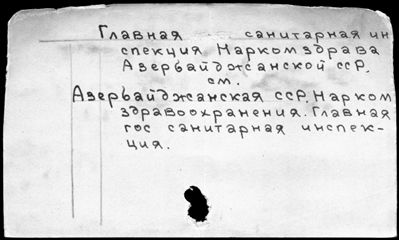 Главная санитарная ин
спекция Наркомздрава
Азербайджанской ССР.
см.
Азербайджанская ССР. Нарком
здравоохранения. Главная
гос санитарная инспек-
ция.